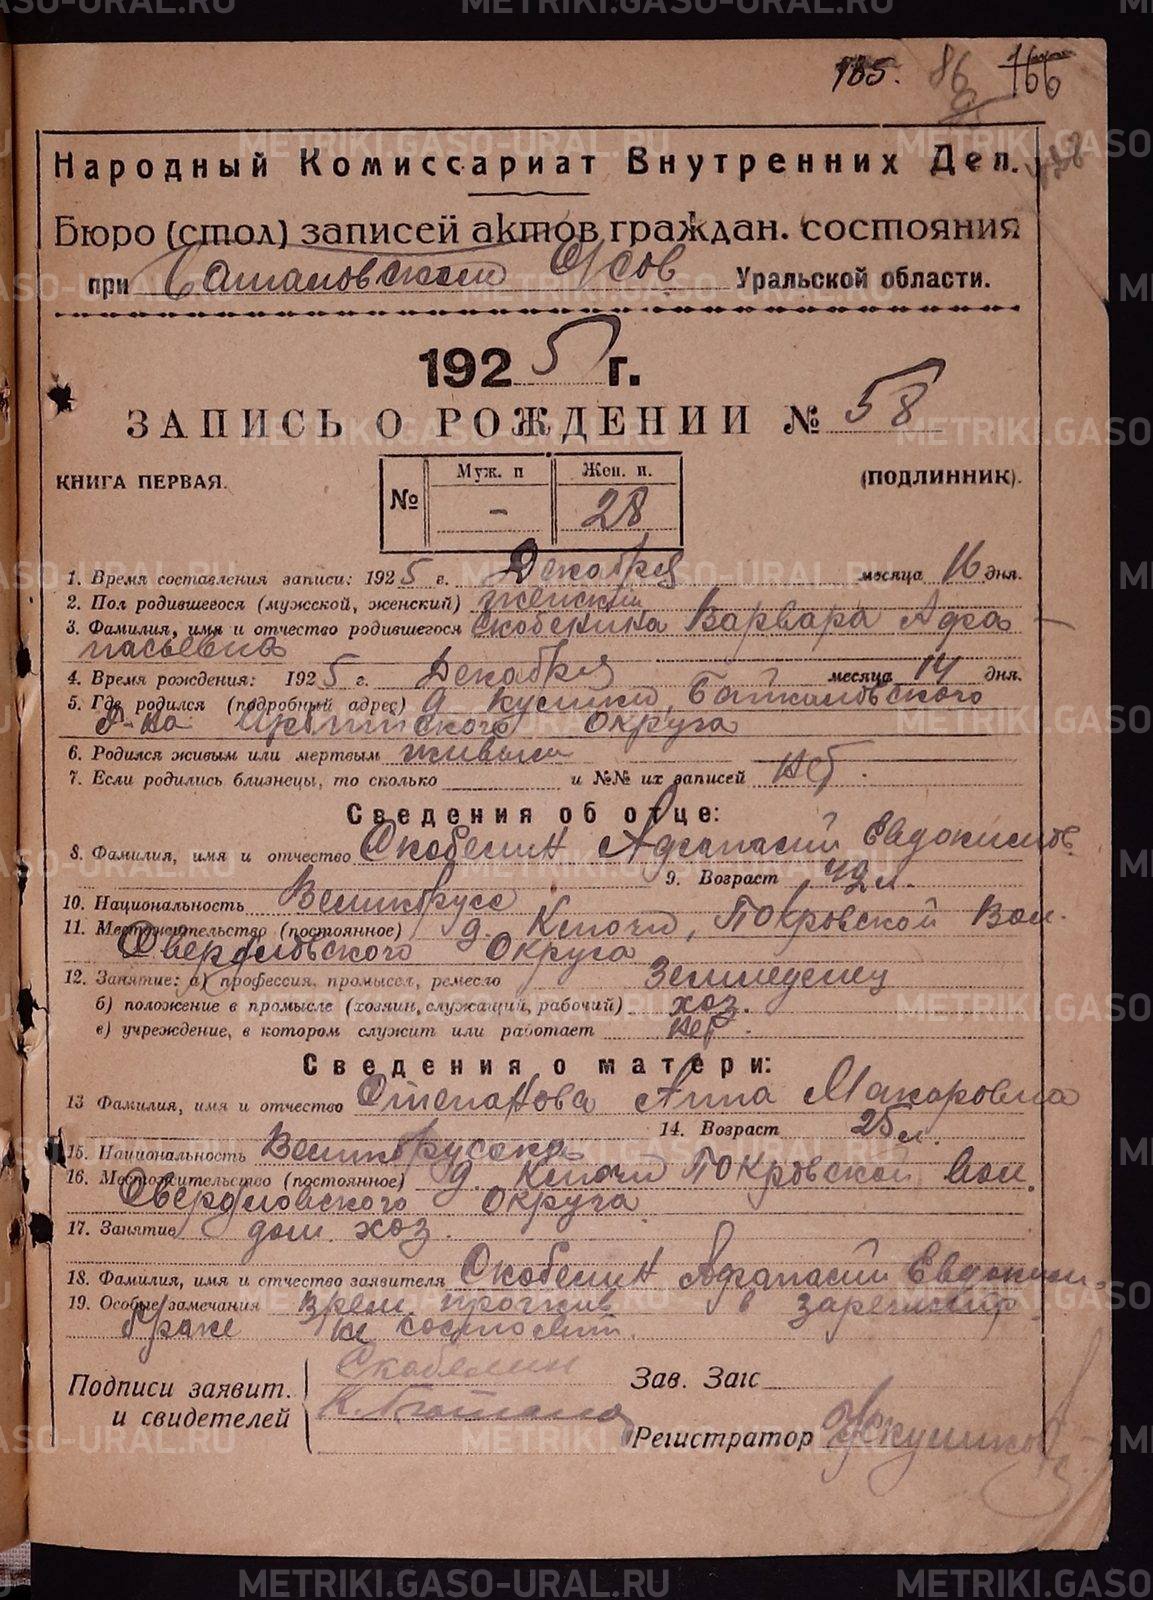 165. 86 166
Народный Комиссариат Внутренних Дел.
Бюро (стол) записей актов граждан. состояния
при Уральской области.
1925 г.
ЗАПИСЬ О РОЖДЕНИИ № 58
КНИГА ПЕРВАЯ. (ПОДЛИННИК).
№ Муж. п Жен. п.
- 28
1. Время составления записи: 1925 г. Декабря месяца 16 дня.
2. Пол родившегося (мужской, женский) женский
3. Фамилия, имя и отчество родившегося Скобелина Варвара Афа
насьевна
4. Время рождения: 1925 г. Декабря месяца 14 дня.
5. Где родился (подробный адрес) д. Байкаловского
р-на Ирбитского Округа
6. Родился живым или мертвым живым
7. Если родились близнецы, то сколько и №№ их записей нет.
Сведения об отце:
8. Фамилия, имя и отчество Скобелин Афанасий Евдокимов
9. Возраст 42 л.
10. Национальность Великорусс
11. Местожительство (постоянное) д. Ключи, Покровской Вол.
Свердловского Округа
12. Занятие: а) профессия, промысел, ремесло Земледелец
б) положение в промысле (хозяин, служащий, рабочий) хоз.
в) учреждение, в котором служит или работает нет.
Сведения о матери:
13 Фамилия, имя и отчество Степанова Анна Макаровна
14. Возраст 25 л.
15. Национальность Великорусска
16. Местожительство (постоянное) д. Ключи Покровской Вол.
Свердловского Округа
17. Занятие дом. хоз.
18. Фамилия, имя и отчество заявителя Скобелин Афанасий Евдоким.
19. Особые замечания Врем. прожив в
браке не состоит.
Подписи заявит. Скобелин Зав. Загс
и свидетелей
Регистратор
METRIKI.GASO-URAL.RU